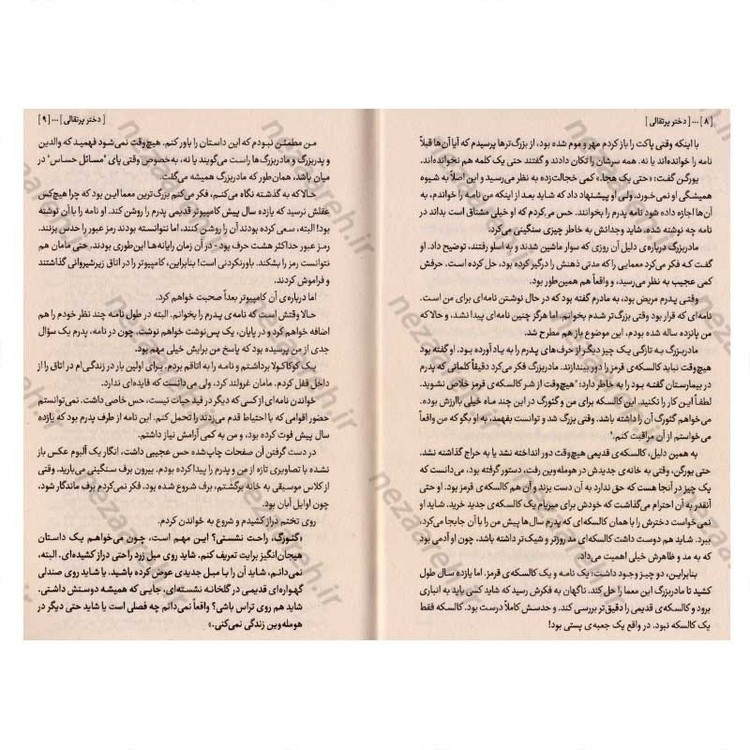 [ ۸ ] ... [ دختر پرتقالی ]
با اینکه وقتی پاکت را باز کردم مهر و موم شده بود، از بزرگ‌ترها پرسیدم که آیا آن‌ها قبلاً
نامه را خوانده‌اند یا نه. همه سرشان را تکان دادند و گفتند حتی یک کلمه هم نخوانده‌اند.
یورگن گفت: «حتی یک هجا.» کمی خجالت‌زده به نظر می‌رسید و این اصلاً به شیوه
همیشگی او نمی‌خورد. ولی او پیشنهاد داد که شاید بعد از اینکه من نامه را خواندم، به
آن‌ها اجازه داده شود نامه پدرم را بخوانند. حس می‌کردم که او خیلی مشتاق است بداند در
نامه چه نوشته شده. شاید وجدانش به خاطر چیزی سنگینی می‌کرد.
مادربزرگ درباره‌ی دلیل آن روزی که سوار ماشین شدند و به اسلو رفتند، توضیح داد. او
گفت که فکر می‌کرد معمایی را که مدتی ذهنش را درگیر کرده بود، حل کرده است. حرفش
کمی عجیب به نظر می‌رسید، و واقعاً هم همین‌طور بود.
وقتی پدرم مریض بود، به مادرم گفته بود که در حال نوشتن نامه‌ای برای من است.
نامه‌ای که قرار بود وقتی بزرگ‌تر شدم بخوانم. اما هرگز چنین نامه‌ای پیدا نشد، و حالا که
من پانزده ساله شده بودم، این موضوع باز هم مطرح شد.
مادربزرگ به تازگی یک چیز دیگر از حرف‌های پدرم را به یاد آورده بود. او گفته بود
هیچ‌وقت نباید کالسکه‌ی قرمز را دور بیندازند. مادربزرگ فکر می‌کرد دقیقاً کلماتی که پدرم
در بیمارستان گفته بود را به خاطر دارد: "هیچ‌وقت از شر کالسکه‌ی قرمز خلاص نشوید.
لطفاً این کار را نکنید. این کالسکه برای من و گئورگ در این چند ماه خیلی باارزش بوده.
می‌خواهم گئورگ آن را داشته باشد. وقتی بزرگ شد و توانست بفهمد، به او بگو که من واقعاً
می‌خواستم از آن مراقبت کنم."
به همین دلیل، کالسکه‌ی قدیمی هیچ‌وقت دور انداخته نشد یا به حراج گذاشته نشد.
حتی یورگن، وقتی به خانه‌ی جدیدش در هومله‌وین رفت، دستور گرفته بود. می‌دانست که
یک چیز در آنجا هست که حق ندارد به آن دست بزند و آن هم کالسکه‌ی قرمز بود. او حتی
آنقدر به آن احترام می‌گذاشت که خودش برای میریام یک کالسکه‌ی جدید خرید. شاید او
نمی‌خواست دخترش را با همان کالسکه‌ای که پدرم سال‌ها پیش من را با آن جابجا می‌کرد،
ببرد. شاید هم دوست داشت کالسکه‌ای مد روزتر و شیک‌تر داشته باشد، چون او آدمی بود
که به مد و ظاهرش خیلی اهمیت می‌داد.
بنابراین، دو چیز وجود داشت: یک نامه و یک کالسکه‌ی قرمز. اما یازده سال طول
کشید تا مادربزرگ این معما را حل کند. ناگهان به فکرش رسید که شاید کسی باید به انباری
برود و کالسکه‌ی قدیمی را دقیق‌تر بررسی کند. و حدسش کاملاً درست بود. کالسکه فقط
یک کالسکه نبود. در واقع یک جعبه‌ی پستی بود!
[ دختر پرتقالی ] ... [ ۹ ]
من مطمئن نبودم که این داستان را باور کنم. هیچ‌وقت نمی‌شود فهمید که والدین
و پدربزرگ و مادربزرگ‌ها راست می‌گویند یا نه، به‌خصوص وقتی پای "مسائل حساس" در
میان باشد، همان‌طور که مادربزرگ همیشه می‌گفت.
حالا که به گذشته نگاه می‌کنم، فکر می‌کنم بزرگ‌ترین معما این بود که چرا هیچ‌کس
عقلش نرسید که یازده سال پیش کامپیوتر قدیمی پدرم را روشن کند. او نامه را با آن نوشته
بود! البته، سعی کرده بودند آن را روشن کنند، اما نتوانسته بودند رمز عبور را حدس بزنند.
رمز عبور حداکثر هشت حرف بود - در آن زمان رایانه‌ها این‌طوری بودند. حتی مامان هم
نتوانست رمز را بشکند. باورنکردنی است! بنابراین، کامپیوتر را در اتاق زیرشیروانی گذاشتند
و فراموش کردند.
اما درباره‌ی آن کامپیوتر بعداً صحبت خواهم کرد.
حالا وقتش است که نامه‌ی پدرم را بخوانم. البته در طول نامه چند نظر خودم را هم
اضافه خواهم کرد و در پایان، یک پس‌نوشت خواهم نوشت. چون در نامه، پدرم یک سؤال
جدی از من پرسیده بود که پاسخ من برایش خیلی مهم بود.
یک کوکاکولا برداشتم و نامه را به اتاقم بردم. برای اولین بار در زندگی‌ام در اتاق را از
داخل قفل کردم. مامان غرولند کرد، ولی می‌دانست که فایده‌ای ندارد.
خواندن نامه‌ای از کسی که دیگر در قید حیات نیست، حس خاصی داشت. نمی‌توانستم
حضور اقوامی که با احتیاط قدم می‌زدند را تحمل کنم. این نامه از طرف پدرم بود که یازده
سال پیش فوت کرده بود، و من به کمی آرامش نیاز داشتم.
در دست گرفتن آن صفحات چاپ‌شده حس عجیبی داشت، انگار یک آلبوم عکس باز
نشده با تصاویری تازه از من و پدرم را پیدا کرده بودم. بیرون برف سنگینی می‌بارید. وقتی
از کلاس موسیقی به خانه برگشتم، برف شروع شده بود. فکر نمی‌کردم برف ماندگار شود،
چون اوایل آبان بود.
روی تختم دراز کشیدم و شروع به خواندن کردم.
«گئورگ، راحت نشستی؟ این مهم است، چون می‌خواهم یک داستان
هیجان‌انگیز برایت تعریف کنم. شاید روی مبل زرد راحتی دراز کشیده‌ای. البته،
نمی‌دانم، شاید آن را با مبل جدیدی عوض کرده باشید. یا شاید روی صندلی
گهواره‌ای قدیمی در گلخانه نشسته‌ای، جایی که همیشه دوستش داشتی.
شاید هم روی تراس باشی؟ واقعاً نمی‌دانم چه فصلی است یا شاید حتی دیگر در
هومله‌وین زندگی نمی‌کنی.»
nezaareh.ir